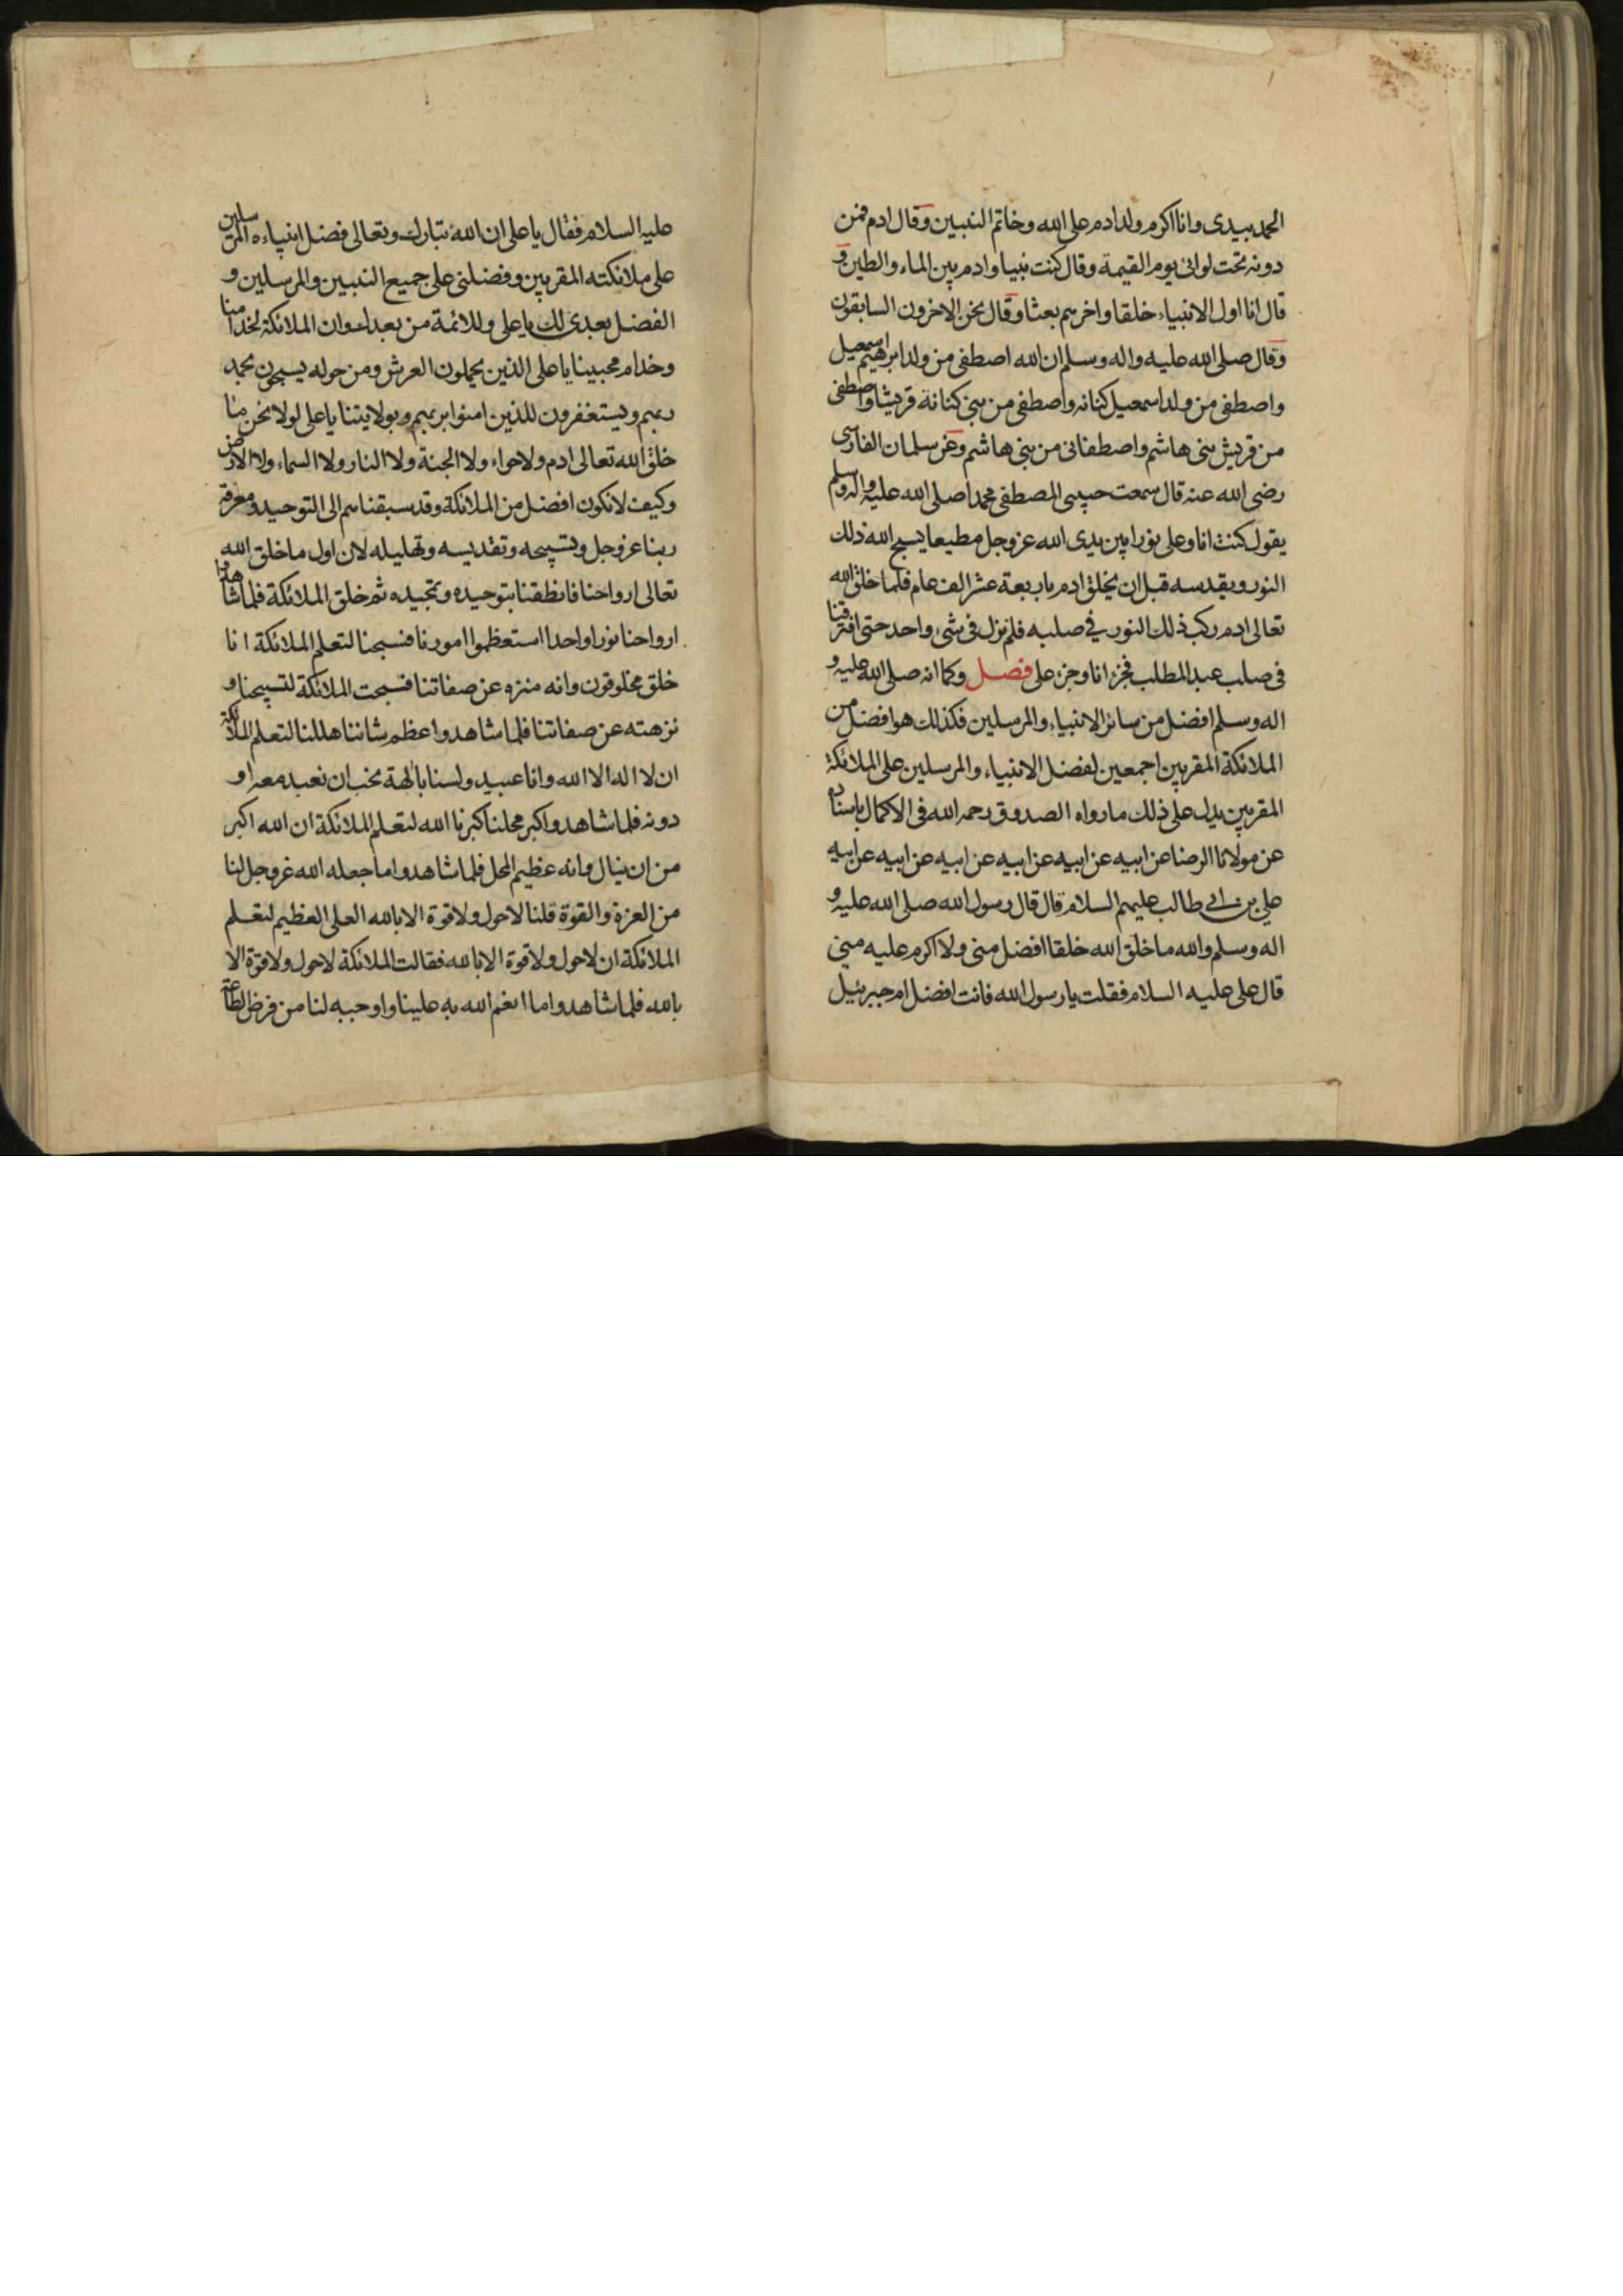 الحمد بيدى وانا اكرم ولد ادم على الله وخاتم النبيين وقال ادم فمن
دونه تحت لوائى يوم القيمة وقال كنت نبيا وادم بين الماء والطين و
قال انا اول الانبياء خلقا واخرهم بعثا وقال نحن الاخرون السابقون
وقال صلى الله عليه واله وسلم ان الله اصطفى من ولد ابراهيم اسمعيل
واصطفى من ولد اسمعيل كنانه واصطفى من بنى كنانة قريشا واصطفى
من قريش بنى هاشم واصطفانى من بنى هاشم وعن سلمان الفارسى
رضى الله عنه قال سمعت حبيبى المصطفى محمدا صلى الله عليه واله وسلم
يقول كنت انا وعلى نورا بين يدى الله عز وجل مطيعا يسبح الله ذلك
النور ويقدسه قبل ان يخلق ادم باربعة عشر الف عام فلما خلق الله
تعالى ادم ركب ذلك النور في صلبه فلم نزل فى شئ واحد حتى افترقنا
فى صلب عبد المطلب فجزء انا وجزء على فصل وكما انه صلى الله عليه و
اله وسلم افضل من سائر الانبياء والمرسلين فكذلك هو افضل من
الملائكة المقربين اجمعين لفضل الانبياء والمرسلين على الملائكة
المقربين يدل على ذلك ما رواه الصدوق رحمه الله فى الاكمال باسناده
عن مولانا الرضا عن ابيه عن ابيه عن ابيه عن ابيه عن ابيه عن ابيه
على بن ابي طالب عليهم السلام قال قال رسول الله صلى الله عليه و
اله وسلم والله ما خلق الله خلقا افضل منى ولا اكرم عليه منى
قال على عليه السلام فقلت يا رسول الله فانت افضل ام جبرئيل
عليه السلام فقال يا على ان الله تبارك وتعالى فضل انبياءه المرسلين
على ملائكته المقربين وفضلنى على جميع النبيين والمرسلين و
الفضل بعدى لك يا على وللائمة من بعدك وان الملائكة لخدامنا
وخدام محبينا يا على الذين يحملون العرش ومن حوله يسبحون بحمد
ربهم ويستغفرون للذين امنوا بربهم وبولايتنا يا على لولا نحن ما
خلق الله تعالى ادم ولا حواء ولا الجنة ولا النار ولا السماء ولا الارض
وكيف لا نكون افضل من الملائكة وقد سبقناهم الى التوحيد ومعرفة
ربنا عز وجل وتسبيحه وتقديسه وتهليله لان اول ما خلق الله
تعالى ارواحنا فانطقنا بتوحيده وتمجيده ثم خلق الملائكة فلما شاهدوا
ارواحنا نورا واحدا استعظموا امورنا فسبحنا لتعلم الملائكة انا
خلق مخلوقون وانه منزه عن صفاتنا فسبحت الملائكة لتسبيحنا و
نزهته عن صفاتنا فلما شاهدوا عظم شاننا هللنا لتعلم الملائكة
ان لا اله الا الله وانا عبيد ولسنا بالهة نحب ان نعبد معه او
دونه فلما شاهدوا كبر محلنا كبرنا الله لتعلم الملائكة ان الله اكبر
من ان ينال وانه عظيم المحل فلما شاهدوا ما جعله الله عز وجل لنا
من العزة والقوة قلنا لا حول ولا قوة الا بالله العلى العظيم لتعلم
الملائكة ان لا حول ولا قوة الا بالله فقالت الملائكة لا حول ولا قوة الا
بالله فلما شاهدوا ما انعم الله به علينا واوجبه لنا من فرض الطاعة